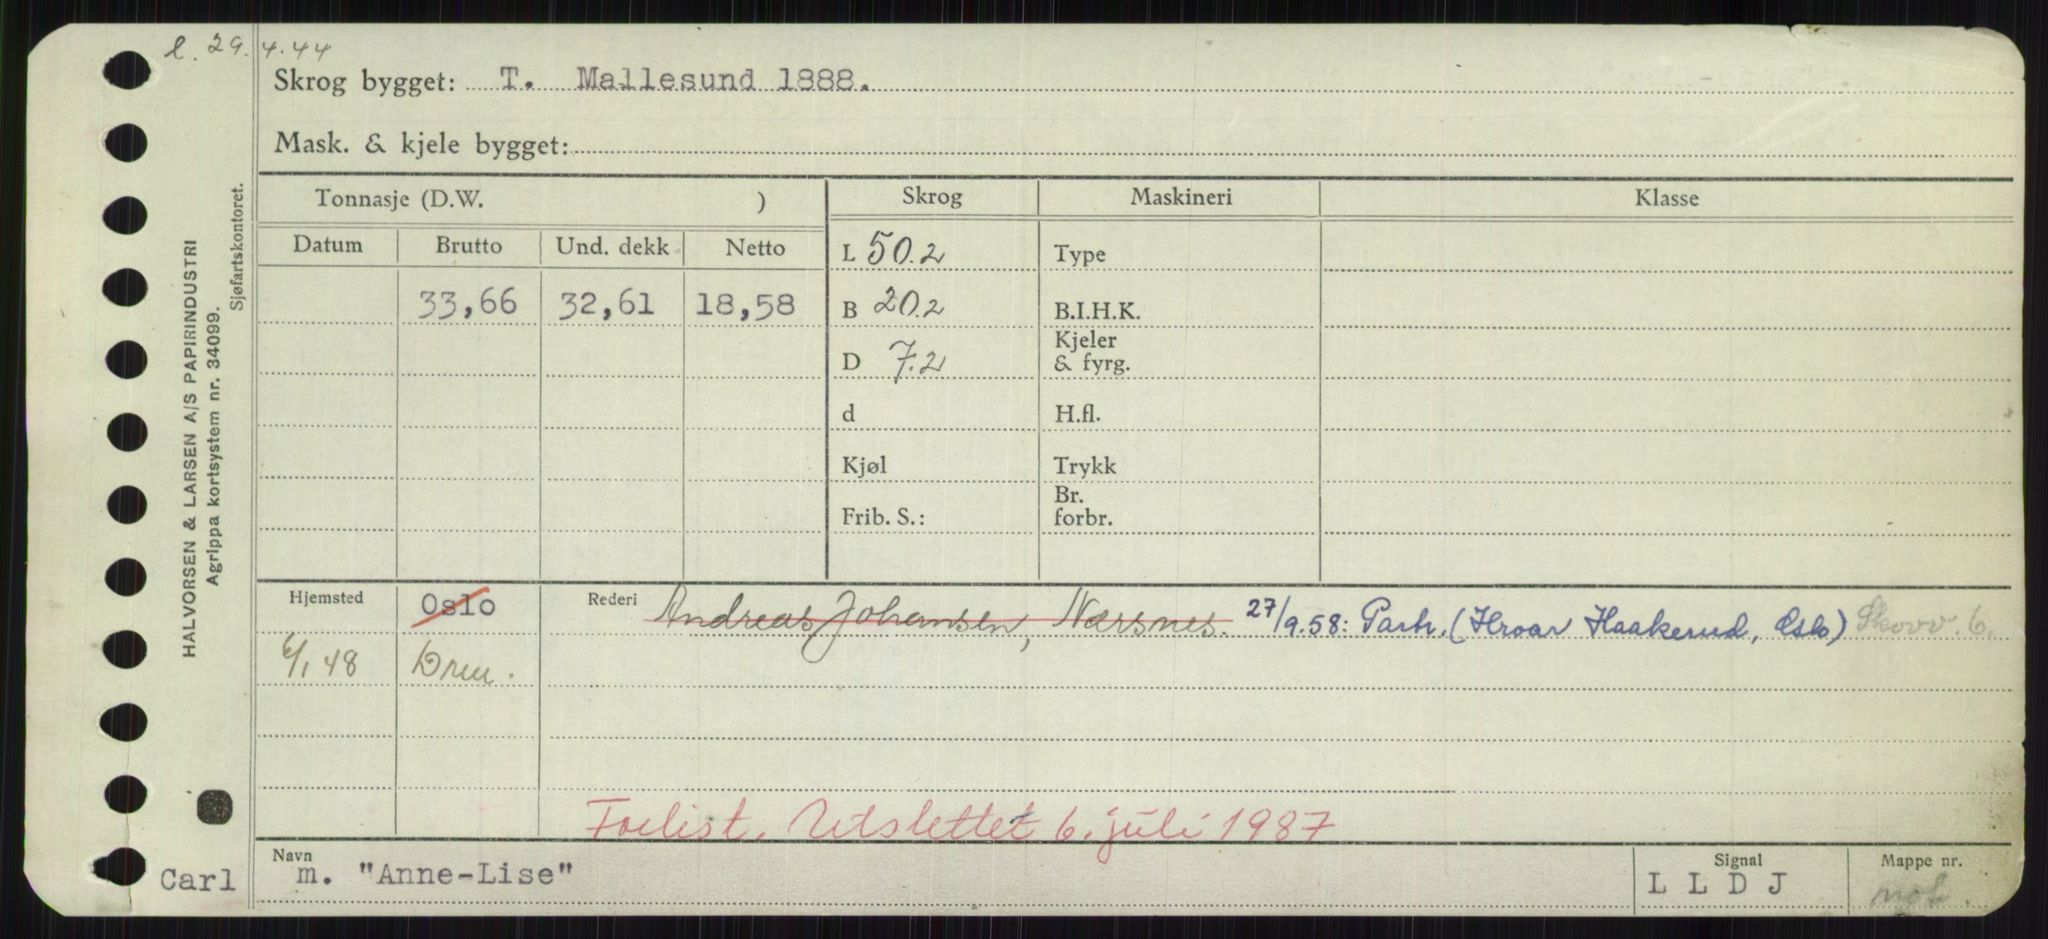 l. 29.4.44
Skrog bygget: T. Mallesund 1888.
Mask. & kjele bygget:
Tonnasje (D.W. ) Skrog Maskineri Klasse
Datum Brutto Und. dekk Netto L 50.2 Type
33,66 32,61 18,58 B 20.2 B.I.H.K.
D 7.2 Kjeler & fyrg.
d H.fl.
Kjøl Trykk
Frib. S.: Br. forbr.
Hjemsted Oslo Rederi Andreas Johansen, Nærsnes. 27/9.58: Partr. (Hroar Haakerud, Oslo)
6/1 48 Drm.
Forlist. Utslettet 6. juli 1987
Navn Signal Mappe nr.
Carl m. "Anne-Lise" L L D J mot.
HALVORSEN & LARSEN A/S PAPIRINDUSTRI
Agrippa kortsystem nr. 34099.
Sjøfartskontoret.